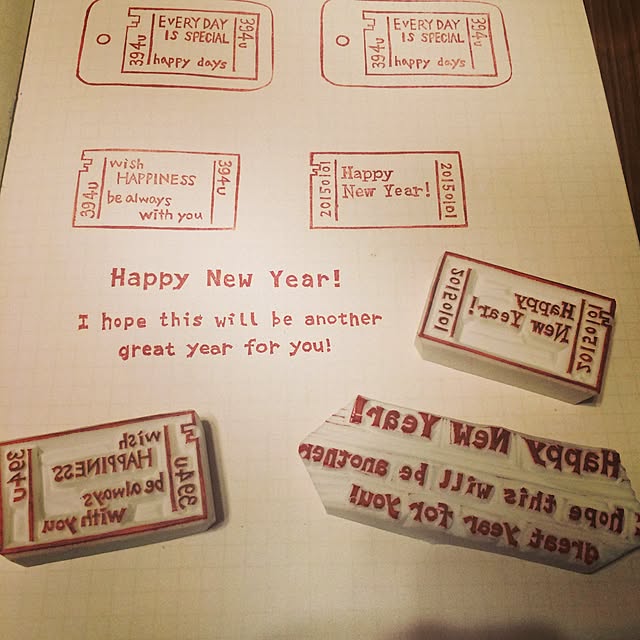 394u
EVERY DAY
IS SPECIAL
happy days
394u
394u
EVERY DAY
IS SPECIAL
happy days
394u
394u
wish
HAPPINESS
be always
with you
394u
20150101
Happy
New Year!
20150101
Happy New Year!
I hope this will be another
great year for you!
20150101
Happy
New Year!
20150101
394u
wish
HAPPINESS
be always
with you
394u
Happy New Year!
hope this will be another
great year for you!